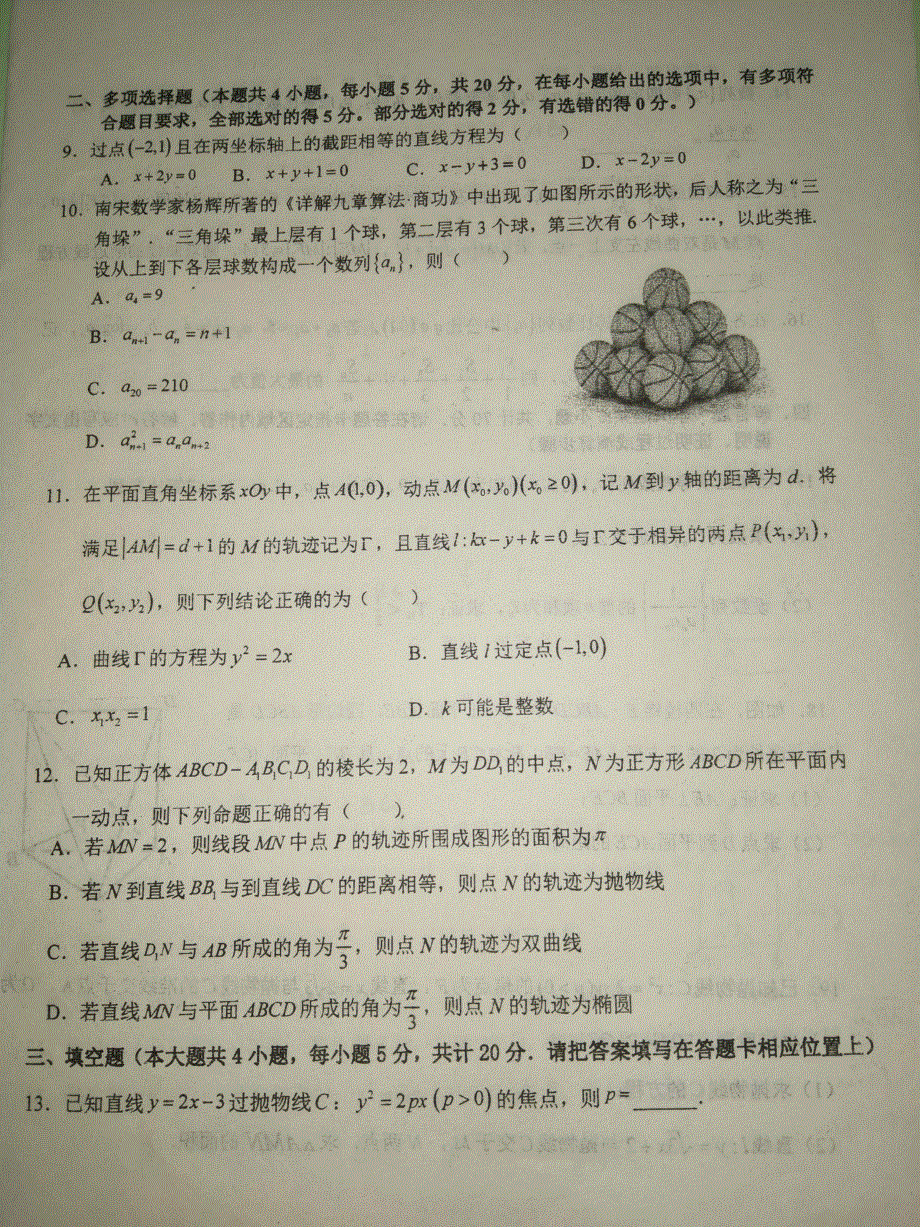 二、多项选择题（本题共 4 小题，每小题 5 分，共 20 分，在每小题给出的选项中，有多项符
合题目要求，全部选对的得 5 分。部分选对的得 2 分，有选错的得 0 分。）
9．过点(-2,1)且在两坐标轴上的截距相等的直线方程为（ ）
A．x+2y=0 B．x+y+1=0 C．x-y+3=0 D．x-2y=0
10．南宋数学家杨辉所著的《详解九章算法·商功》中出现了如图所示的形状，后人称之为“三
角垛”．“三角垛”最上层有 1 个球，第二层有 3 个球，第三次有 6 个球，…，以此类推.
设从上到下各层球数构成一个数列{aₙ}，则（ ）
A．a₄=9
B．aₙ₊₁-aₙ=n+1
C．a₂₀=210
D．aₙ₊₁²=aₙaₙ₊₂
11．在平面直角坐标系xOy中，点A(1,0)，动点M(x₀,y₀)(x₀≥0)，记M到y轴的距离为d．将
满足|AM|=d+1的M的轨迹记为Γ，且直线l:kx-y+k=0与Γ交于相异的两点P(x₁,y₁)，
Q(x₂,y₂)，则下列结论正确的为（ ）
A．曲线Γ的方程为y²=2x B．直线l过定点(-1,0)
C．x₁x₂=1 D．k可能是整数
12．已知正方体ABCD-A₁B₁C₁D₁的棱长为2，M为DD₁的中点，N为正方形ABCD所在平面内
一动点，则下列命题正确的有（ ）
A．若MN=2，则线段MN中点P的轨迹所围成图形的面积为π
B．若N到直线BB₁与到直线DC的距离相等，则点N的轨迹为抛物线
C．若直线D₁N与AB所成的角为π/3，则点N的轨迹为双曲线
D．若直线MN与平面ABCD所成的角为π/3，则点N的轨迹为椭圆
三、填空题（本大题共 4 小题，每小题 5 分，共计 20 分．请把答案填写在答题卡相应位置上）
13．已知直线y=2x-3过抛物线C：y²=2px(p>0)的焦点，则p=______.